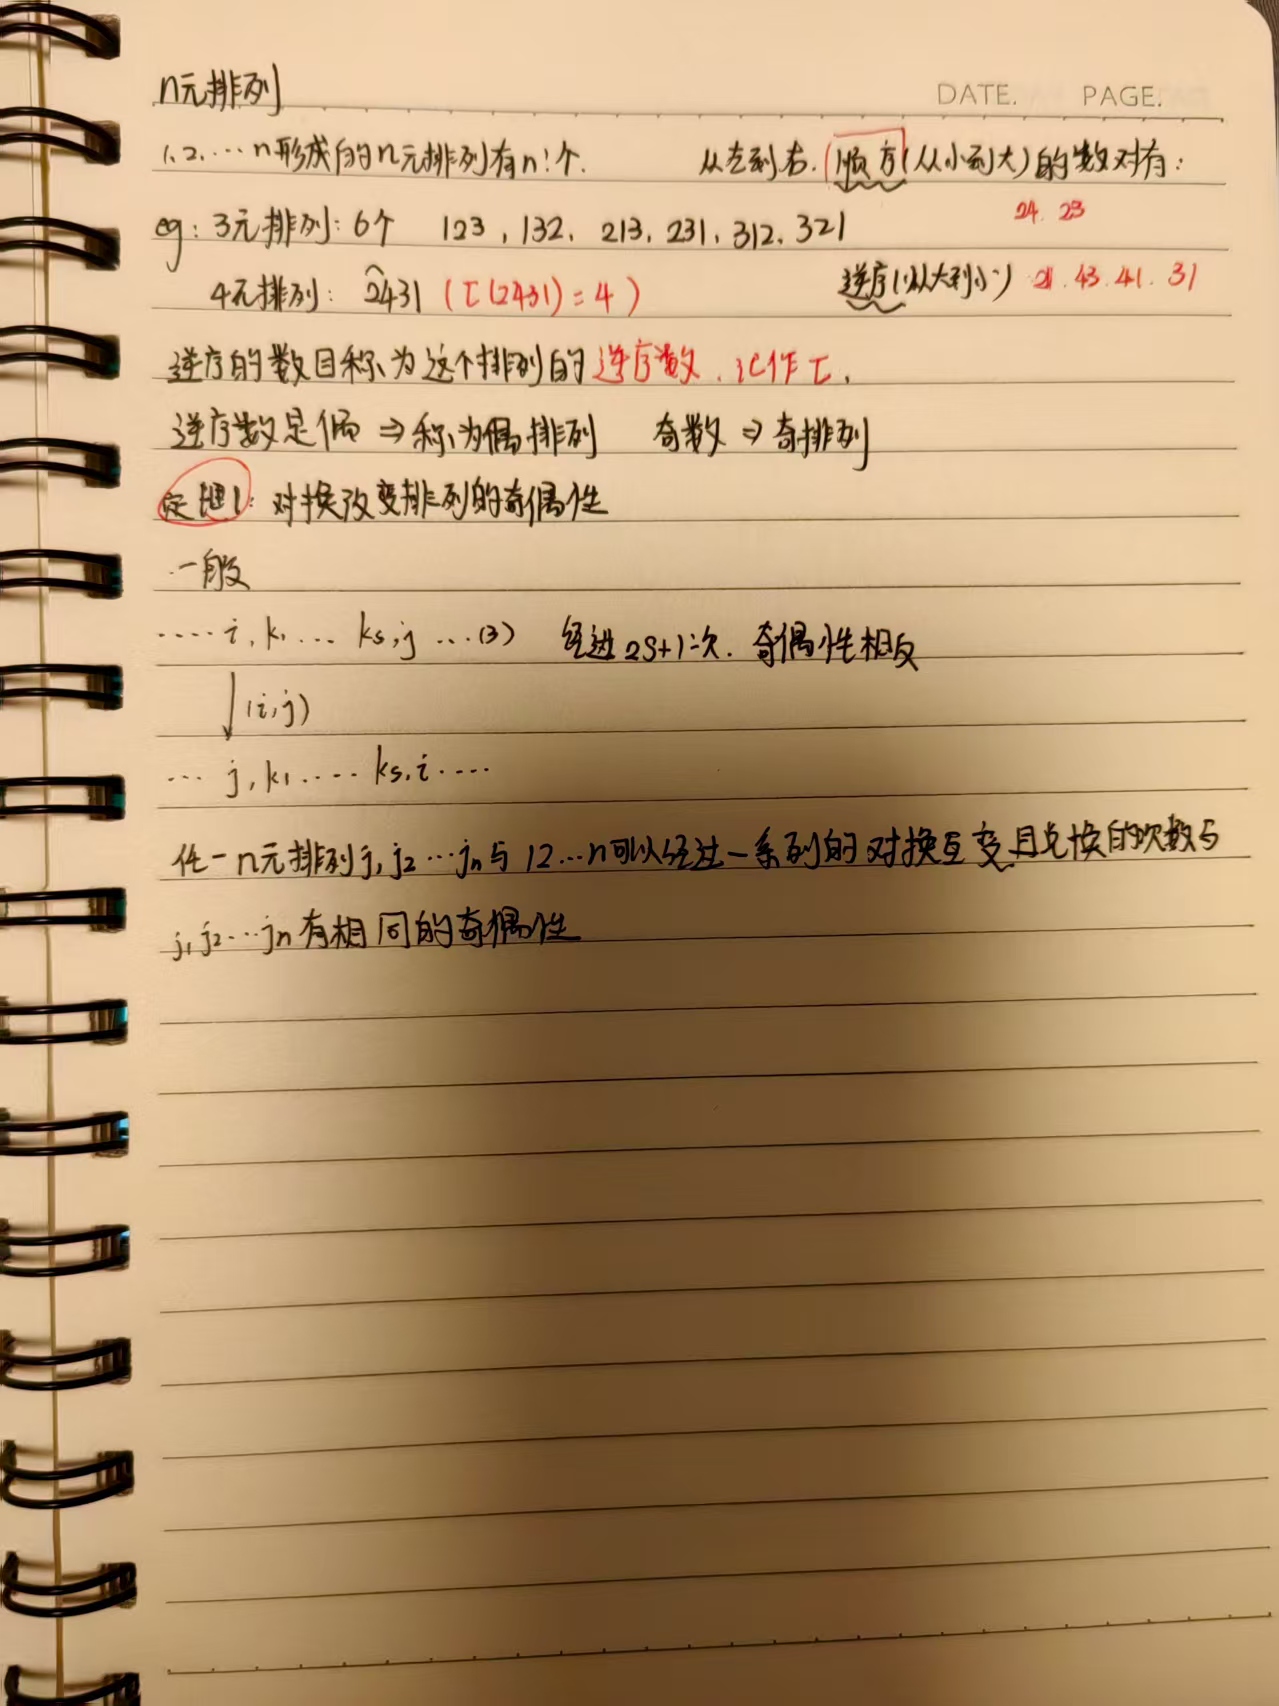 n元排列
DATE. PAGE.
1、2、…n形成的n元排列有n!个. 从左到右.顺序(从小到大)的数对有:
24. 23
eg: 3元排列: 6个 123, 132, 213, 231, 312, 321
4元排列: 2431 (τ(2431)=4) 逆序(从大到小) 21. 43. 41. 31
逆序的数目称为这个排列的逆序数.记作τ.
逆序数是偶⇒称为偶排列 奇数⇒奇排列
定理1:对换改变排列的奇偶性
一般
…… i, k1 … ks, j …(3) 经过2s+1次.奇偶性相反
(i,j)
… j, k1 …… ks, i ……
任一n元排列j1 j2…jn与12…n可以经过一系列的对换互变且兑换的次数与
j1 j2…jn有相同的奇偶性